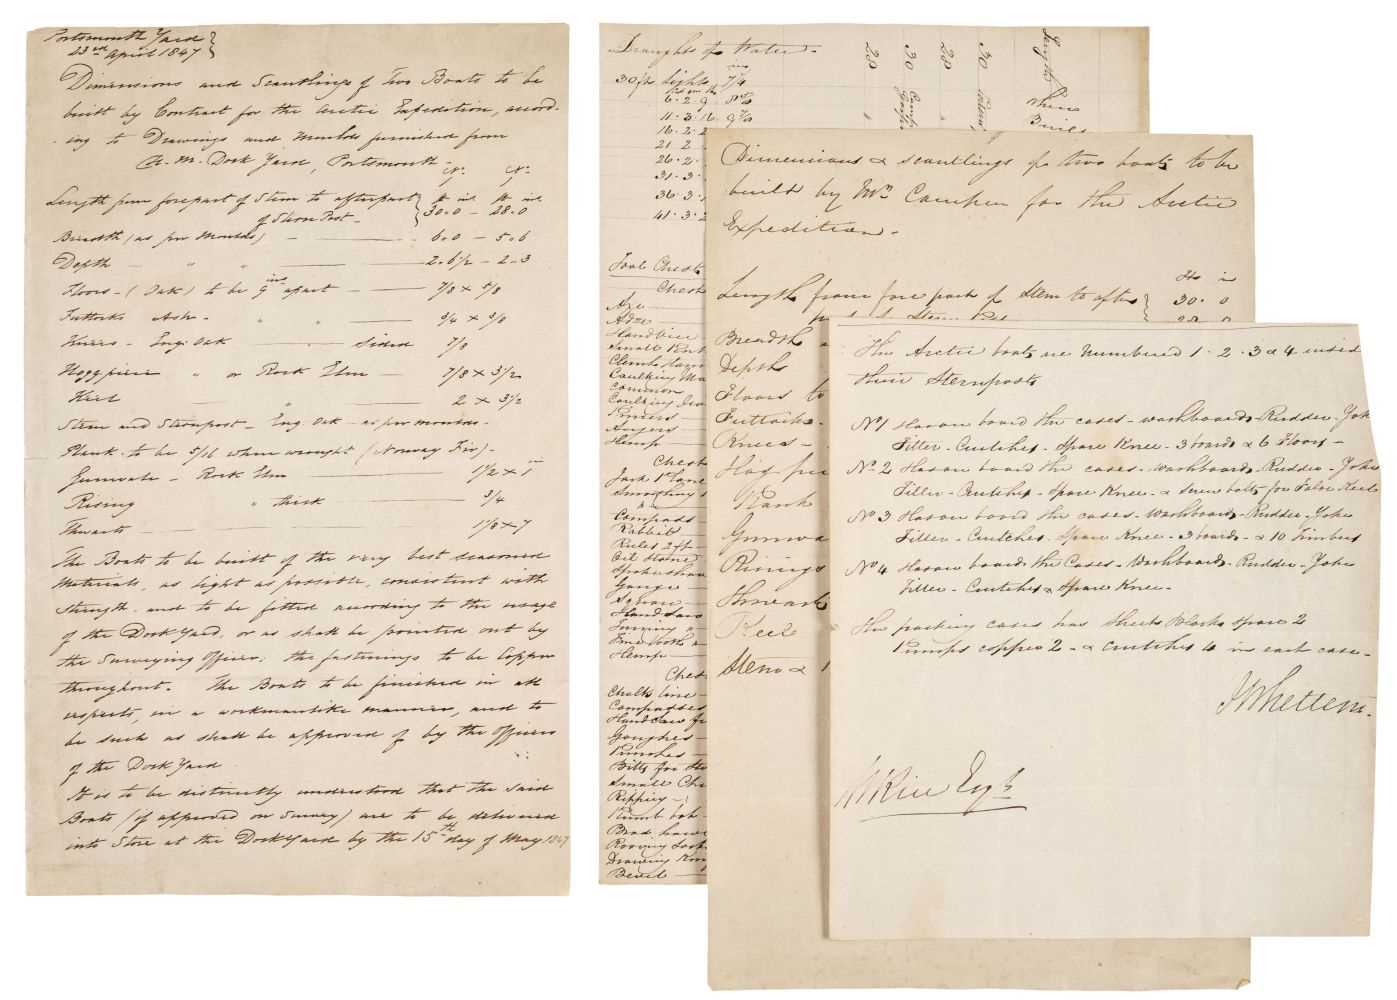 Portsmouth Yard
23rd April 1847
Dimensions and Scantlings of Two Boats to be
built by Contract for the Arctic Expedition, accord-
-ing to Drawings and Moulds furnished from
H. M. Dock Yard, Portsmouth -
No. No.
ft ins ft ins
Length from forepart of Stem to afterpart
of Stern Post - 30.0 - 28.0
Breadth (as per Moulds) - 6.0 - 5.6
Depth - " " - 2.6 1/2 - 2.3
Floors - (Oak) to be 9 ins apart - 7/8 x 5/8
Futtocks Ash - " " - 3/4 x 5/8
Knees - Eng. Oak - Sided 7/8
Hogpiece " or Rock Elm - 7/8 x 3 1/2
Keel - 2 x 3 1/2
Stem and Sternpost - Eng. Oak - as per moulds -
Plank - to be 5/16 when wrought (Norway Fir) -
Gunwale - Rock Elm - 1 1/2 x 1
Rising " thick - 3/4
Thwarts - 1 1/8 x 7
The Boats to be built of the very best seasoned
Materials, as light as possible, consistent with
strength - and to be fitted according to the usage
of the Dock Yard, or as shall be pointed out by
the Surveying Officer: the fastenings to be Copper
throughout. The Boats to be finished in all
respects, in a workmanlike manner, and to
be such as shall be approved of by the Officers
of the Dock Yard
It is to be distinctly understood that the said
Boats (if approved on Survey) are to be delivered
into Store at the Dock Yard by the 15th day of May 1847
Draughts of Water -
30 ft light 7 1/4
6 - 2 - 9
11 - 3 - 16
16 - 2 - 2
21 2
26 - 2 -
31 - 3 -
36 - 3 - 1
41 - 3 - 2
Length
30
28
30
28
When
Built
Tool Chest
Chest
Axe
Adze
Hand
Small
Caulking Ma
Common
Caulking Iro
Pincers
Augers
Hemp
Chest
Jack Plane
Smoothing
Compass
Rabbit
Rules 2 ft
Oil Stone
Spokeshave
Gouge
Square
Hand Saw
Hemp
Chest
Chalk line
Compasses
Hand Saw
Gouges
Punches
Bitts for
Small Che
Ripping
Plumb bob
Drawing Kni
Bevel
Dimensions & scantlings of two boats to be
built by Mr. Camper for the Arctic
Expedition -
fts in
Length from fore part of Stem to after 30. 0
28 0
Breadth
Depth
Floors to
Futtocks
Knees -
Hog piece
Plank
Gunwa
Risings
Thwarts
Keel
Stem &
The Arctic boats are Numbered 1 - 2 - 3 & 4 insid
their Sternposts
No 1 Has on board the cases - washboards - Rudder - Yoke
Tiller - Crutches - Spare Knee - 3 boards & 6 Floors -
No. 2 Has on board the cases - washboards - Rudder - Yoke
Tiller - Crutches - Spare Knee - & screw bolts for False Keel
No 3 Has on board the cases - Washboards - Rudder - Yoke
Tiller - Crutches - Spare Knee - 3 boards - & 10 Timbers
No 4 Has on board the Cases - Washboards - Rudder - Yoke
Tiller - Crutches & Spare Knee -
The packing cases has Sheet Blocks spare 2
Pumps copper 2 - & Crutches 4 in each case -
W Rice Esqr